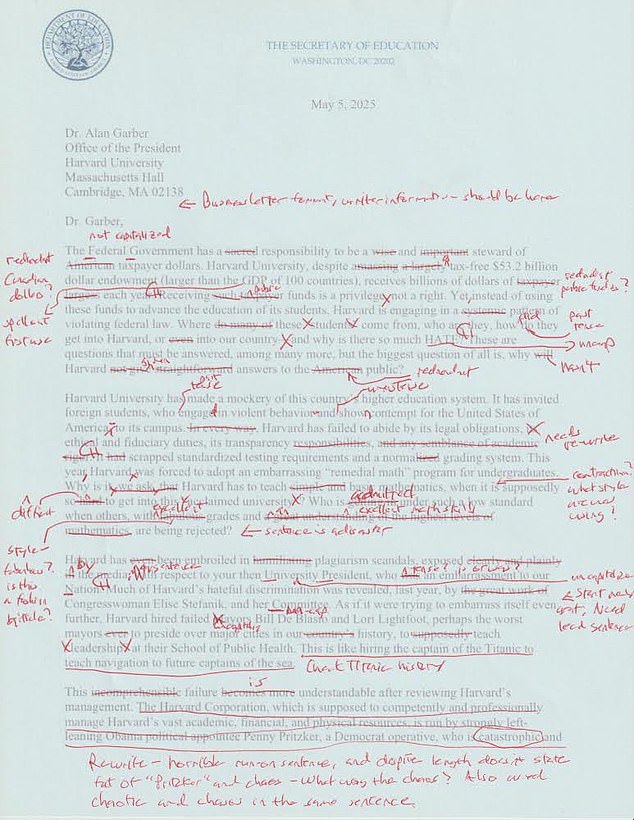 DEPARTMENT OF EDUCATION
THE SECRETARY OF EDUCATION
WASHINGTON, DC 20202
May 5, 2025
Dr. Alan Garber
Office of the President
Harvard University
Massachusetts Hall
Cambridge, MA 02138
← Business letter format, writer information – should be here
Dr. Garber,
not capitalized
The Federal Government has a sacred responsibility to be a wise and important steward of
American taxpayer dollars. Harvard University, despite amassing a largely tax-free $53.2 billion
dollar endowment (larger than the GDP of 100 countries), receives billions of dollars of taxpayer
largess each year. Receiving such taxpayer funds is a privilege, not a right. Yet instead of using
these funds to advance the education of its students, Harvard is engaging in a systemic pattern of
violating federal law. Where do many of these students come from, who are they, how do they
get into Harvard, or even into our country and why is there so much HATE? These are
questions that must be answered, among many more, but the biggest question of all is, why will
Harvard not give straightforward answers to the American public?
redundant
Canadian
dollars?
spell out
first use
redundant
public funds?
past
tense
uncap
won't
redundant
Harvard University has made a mockery of this country's higher education system. It has invited
foreign students, who engage in violent behavior and show contempt for the United States of
America, to its campus. In every way, Harvard has failed to abide by its legal obligations, its
ethical and fiduciary duties, its transparency responsibilities, and any semblance of academic
rigor. It had scrapped standardized testing requirements and a normalized grading system. This
year Harvard was forced to adopt an embarrassing "remedial math" program for undergraduates.
Why is it, we ask, that Harvard has to teach simple and basic mathematics, when it is supposedly
so hard to get into this acclaimed university? Who is getting in under such a low standard
when others, with fabulous grades and a great understanding of the highest levels of
mathematics, are being rejected?
needs
re-write
contraction?
what style
are we
using?
admitted
excellent
excellent math skills
← sentence is a disaster
different
style –
fabulous?
is this
a fashion
Harvard has even been embroiled in humiliating plagiarism scandals, exposed clearly and plainly
in the media, with respect to your then University President, who was an embarrassment to our
Nation. Much of Harvard's hateful discrimination was revealed, last year, by the great work of
Congresswoman Elise Stefanik, and her Committee. As if it were trying to embarrass itself even
further, Harvard hired failed Mayors Bill De Blasio and Lori Lightfoot, perhaps the worst
mayors ever to preside over major cities in our country's history, to supposedly teach
leadership at their School of Public Health. This is like hiring the captain of the Titanic to
teach navigation to future captains of the sea.
by
uncapitalize
← Start new
graf, Need
lead sentence
Check TITANIC history
is
This incomprehensible failure becomes more understandable after reviewing Harvard's
management. The Harvard Corporation, which is supposed to competently and professionally
manage Harvard's vast academic, financial, and physical resources, is run by strongly left-
leaning Obama political appointee Penny Pritzker, a Democrat operative, who is catastrophic and
Rewrite – horrible run on sentence, and despite length doesn't state
of "Pritzker" and chaos – What was the chaos? Also used
chaotic and chaos in the same sentence.